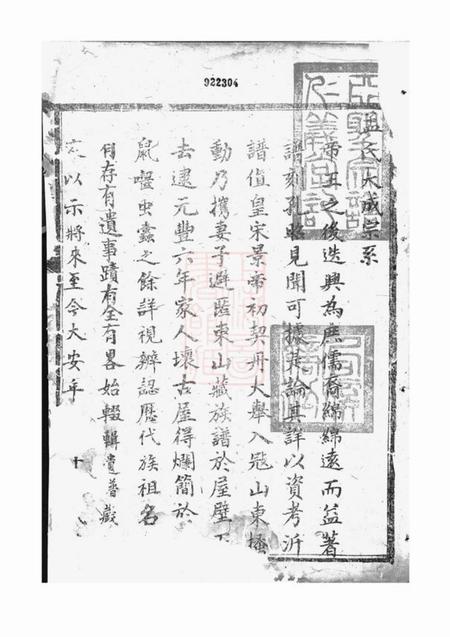 922304
孟氏大成宗系
帝王之後迭興為庶儒裔綿綿遠而益著
譜刻孔昭見聞可據其論其詳以資考沂
譜值皇宋景帝初契丹大舉入寇山東搔
動乃攜妻子避匿東山藏族譜於屋壁
去逮元豐六年家人壞古屋得爛簡於
鼠囓虫蠹之餘詳視辨認歷代族祖名
何存有遺事蹟有全有畧始輟輯遺譜藏
以示將來至今大安年 十